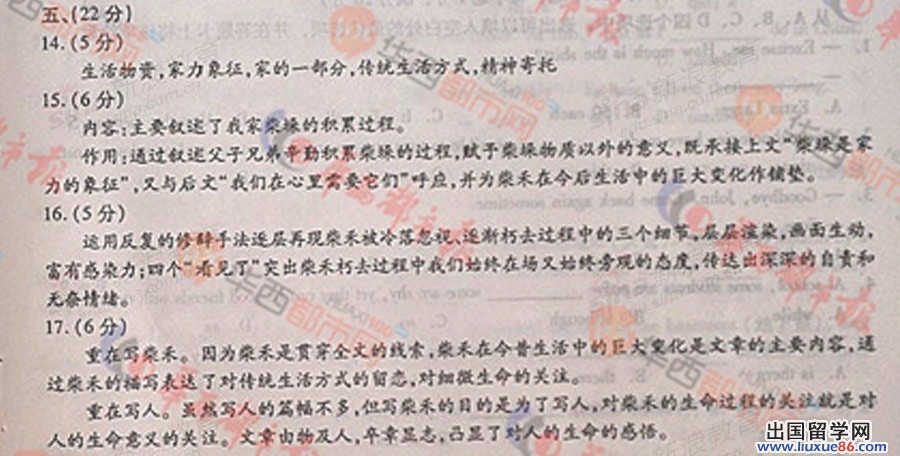 五、(22分)
14.(5分)
生活物资,家力象征,家的一部分,传统生活方式,精神寄托
15.(6分)
内容:主要叙述了我家柴垛的积累过程。
作用:通过叙述父子兄弟辛勤积累柴垛的过程,赋于柴垛物质以外的意义,既承接上文“柴垛是家
力的象征”,又与后文“我们在心里需要它们”呼应,并为柴禾在今后生活中的巨大变化作铺垫。
16.(5分)
运用反复的修辞手法逐层再现柴禾被冷落忽视、逐渐朽去过程中的三个细节,层层渲染,画面生动,
富有感染力;四个“看见了”突出柴禾朽去过程中我们始终在场又始终旁观的态度,传达出深深的自责和
无奈情绪。
17.(6分)
重在写柴禾。因为柴禾是贯穿全文的线索,柴禾在今昔生活中的巨大变化是文章的主要内容,通
过柴禾的描写表达了对传统生活方式的留恋,对细微生命的关注。
重在写人。虽然写人的篇幅不多,但写柴禾的目的是为了写人,对柴禾的生命过程的关注就是对
人的生命意义的关注。文章由物及人,卒章显志,凸显了对人的生命的感悟。
出国留学网
www.liuxue86.com